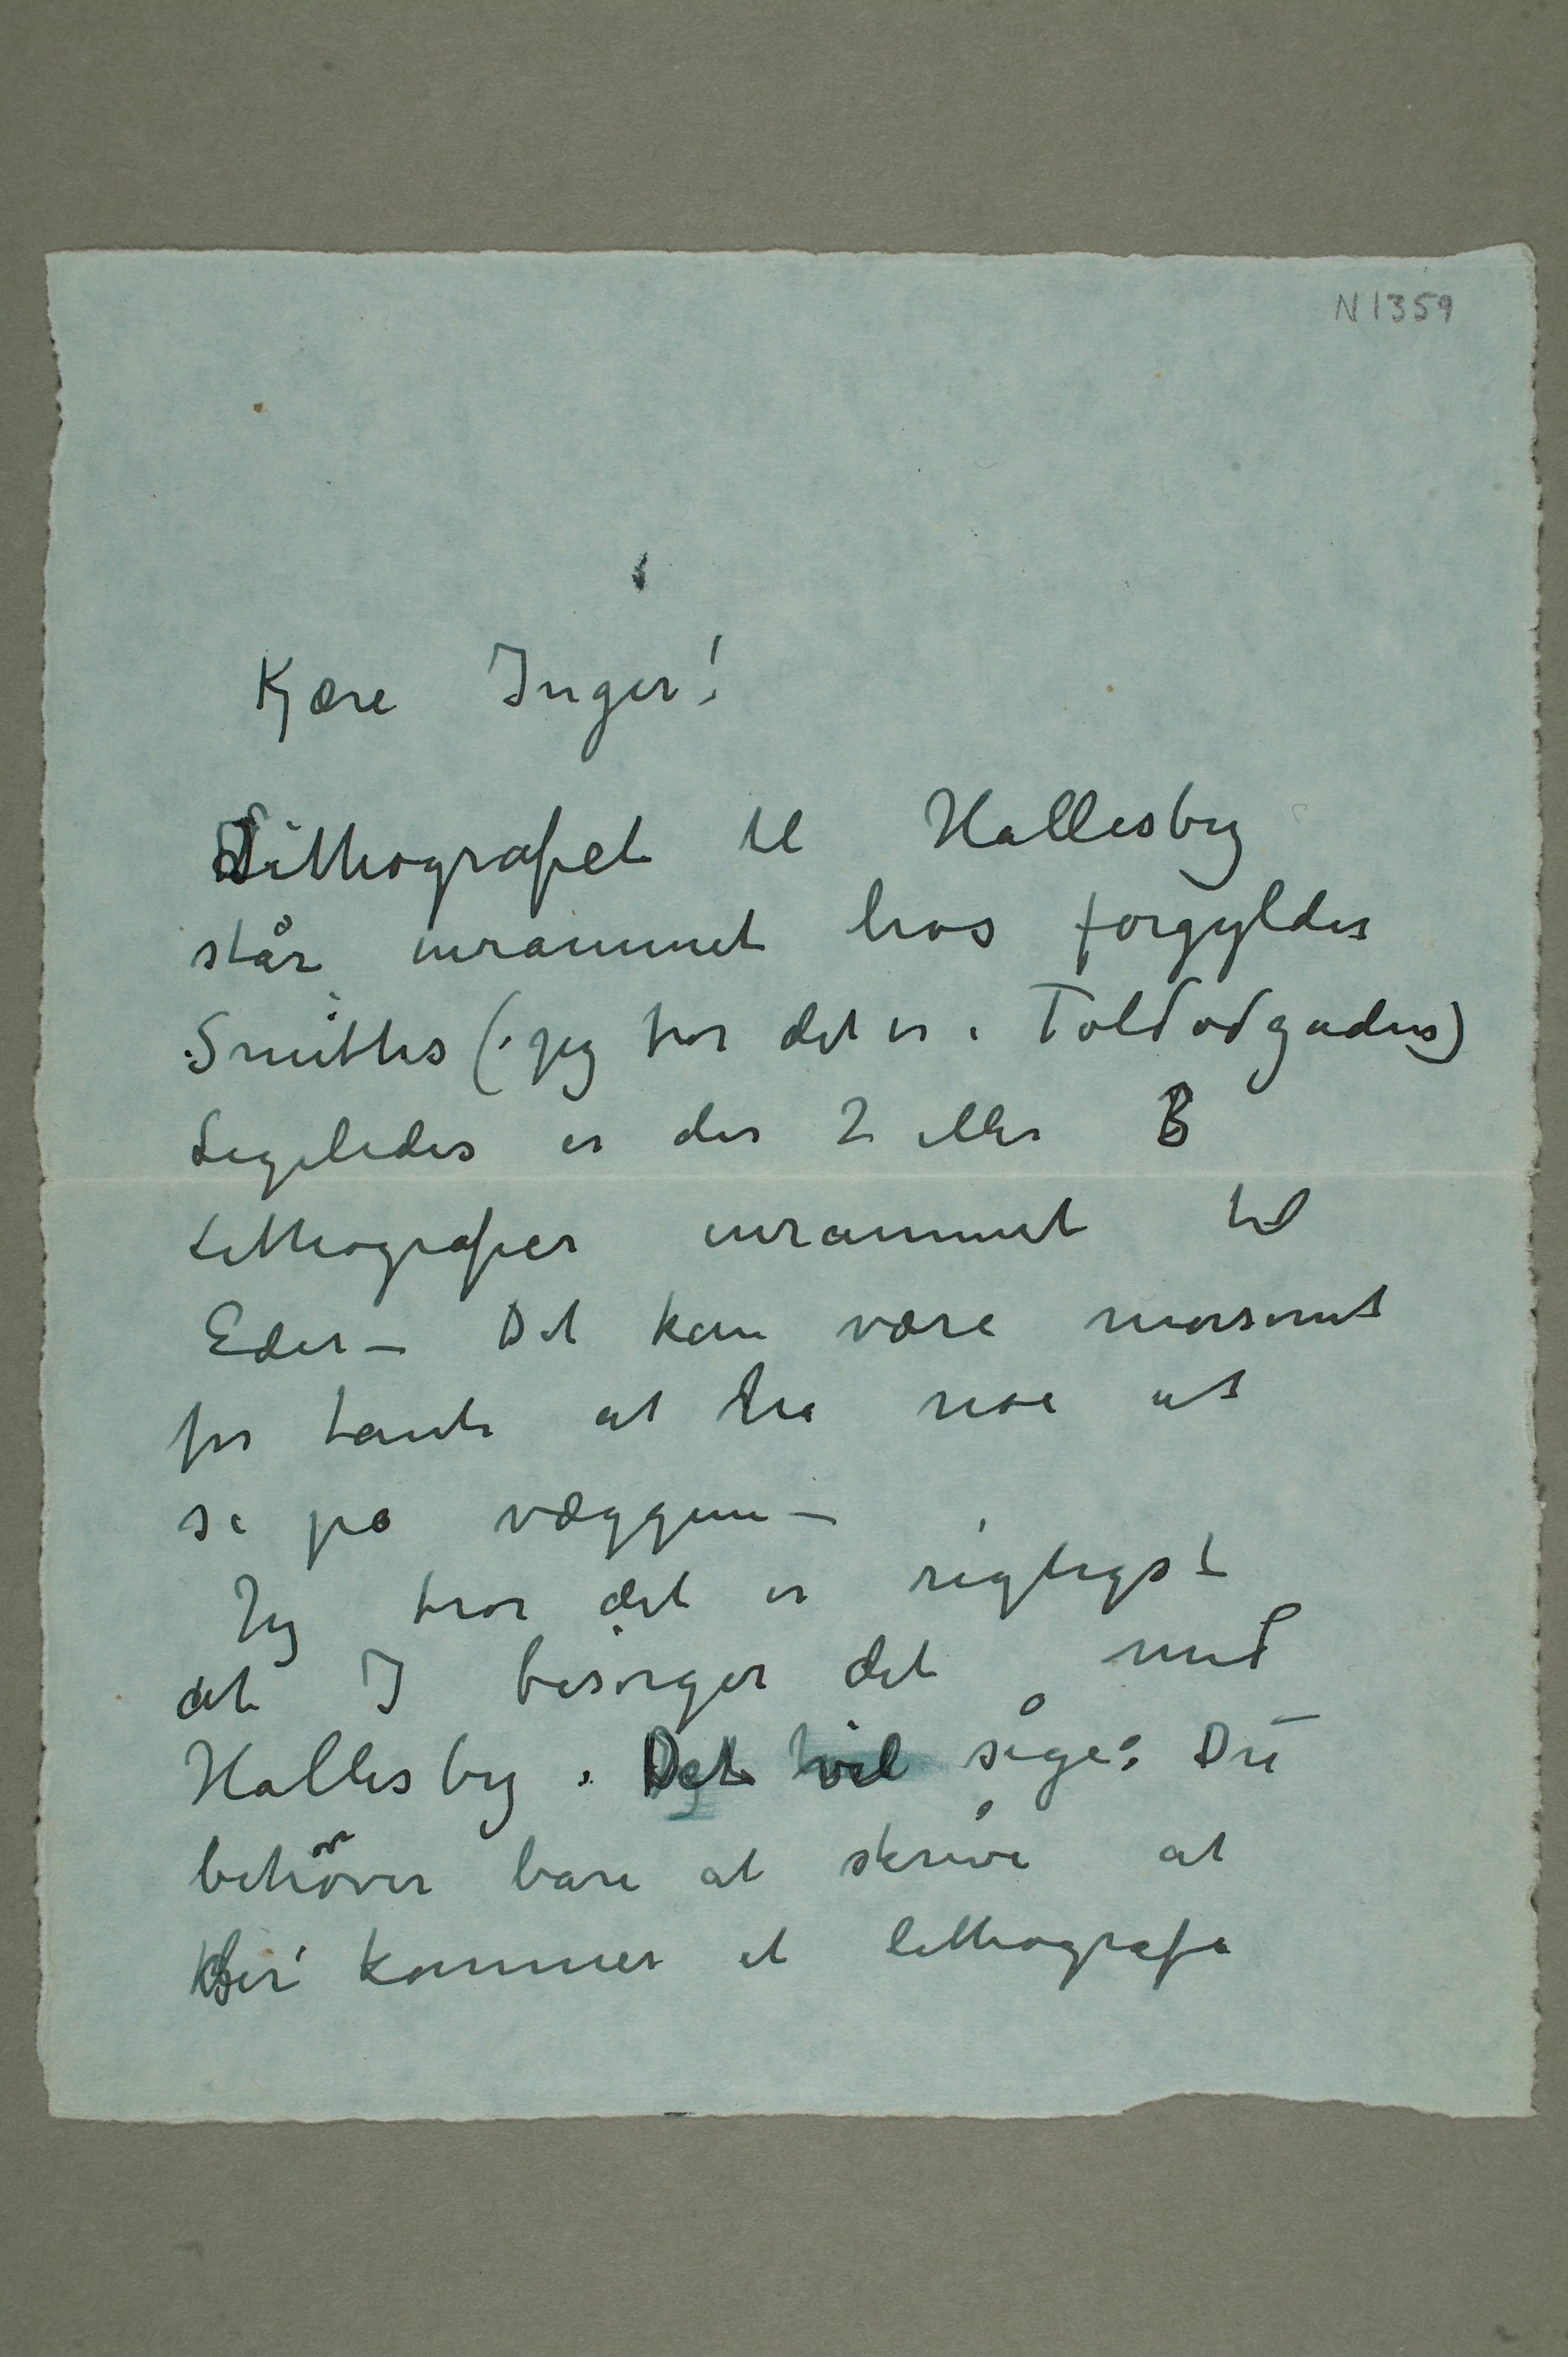 N 1359
Kjære Inger!
Lithografiet til Hallesby
står inrammet hos forgylder
Smiths (jeg tror det er i Toldbodgaden)
Ligeledes er der 2 eller 3
Lithografier inrammet til
Eder – Det kan være morsomt
for tante at ha noe at
se på væggene –
Jeg tror det er rigtigst
at I besørger det med
Hallesby. Det vil sige: Du
behøver bare at skrive at
her kommer et lithografi